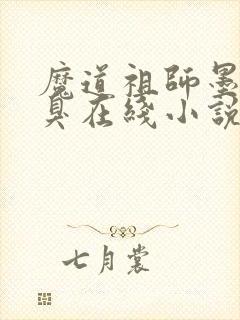 魔道祖師墨
臭在綫小說
七月裳